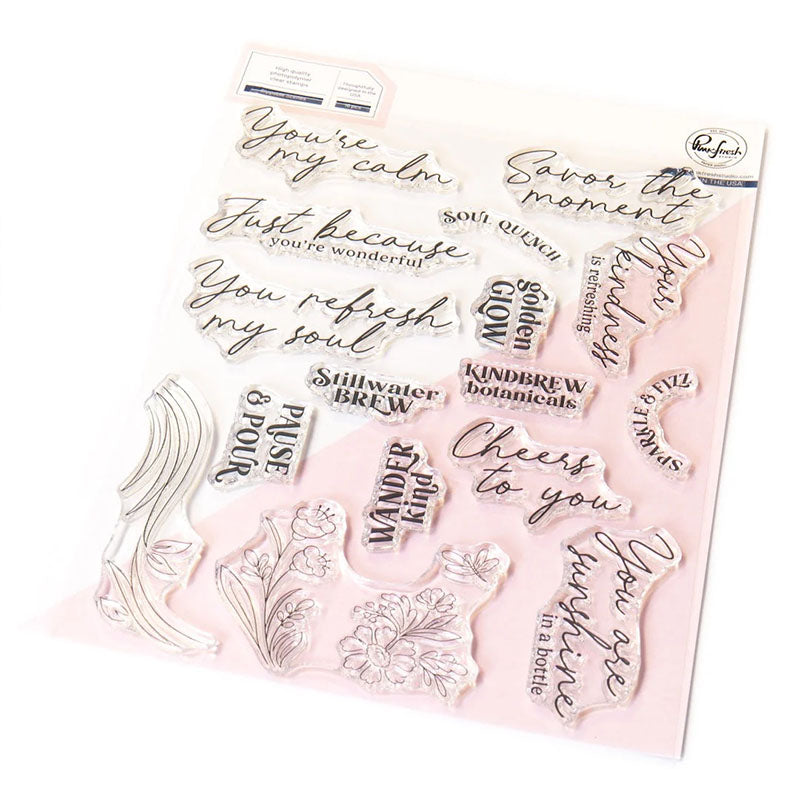 High quality
photopolymer
clear stamps
Thoughtfully
designed in the
USA
Pinkfresh
STUDIO
IN THE USA
You're
my calm
Savor the
moment
Just because
you're wonderful
SOUL QUENCH
Your
kindness
is refreshing
You refresh
my soul
golden
GLOW
Stillwater
BREW
KINDBREW
botanicals
SPARKLE & FIZZ
PAUSE
& POUR
WANDER
kind
Cheers
to you
You are
sunshine
in a bottle